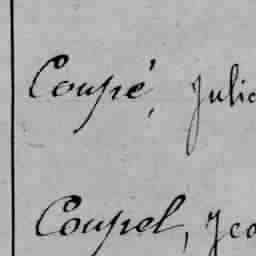 Coupé, Julie
Coupel, Jea